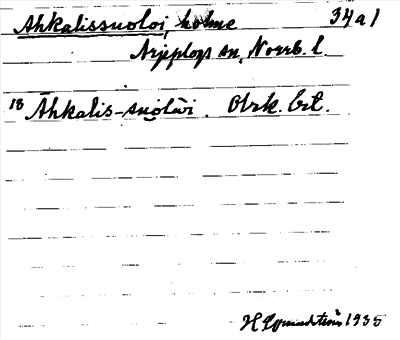 Ahkalissuoloi, holme 34a1
Arjeplogs sn, Norrb. l.
18 Ahkalis-suolüi. Obrk. brt.
1935